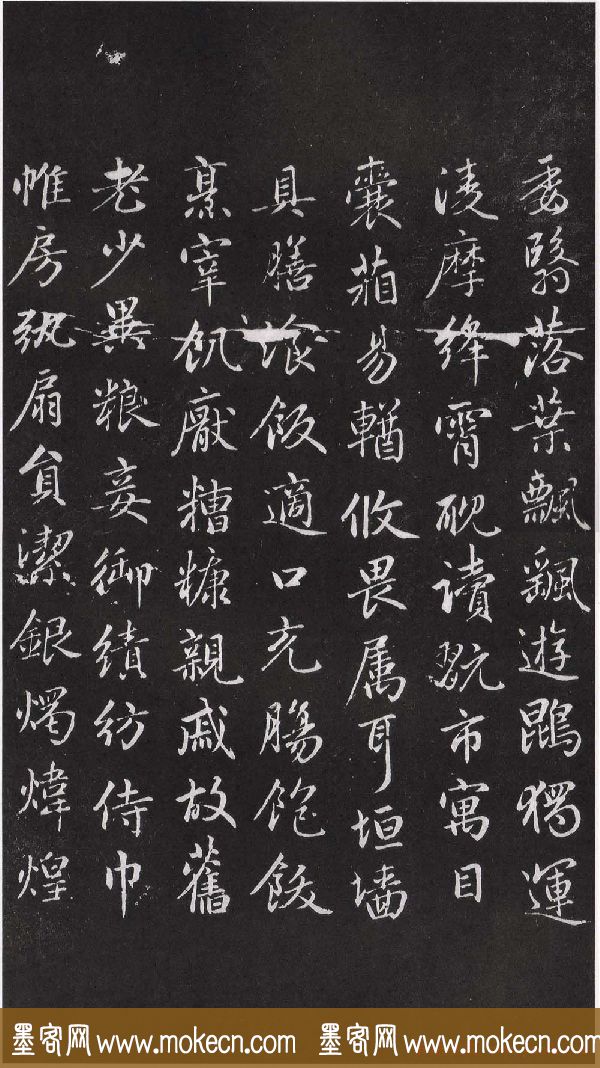 委翳落葉飄颻遊鵾獨運
淩摩絳霄耽讀翫市寓目
囊葙易輶攸畏属耳垣墻
具膳湌飯適口充腸飽飫
烹宰飢厭糟糠親戚故舊
老少異粮妾御績紡侍巾
帷房紈扇員潔銀燭煒煌
墨客网 www.mokecn.com 墨客网 www.mokecn.com